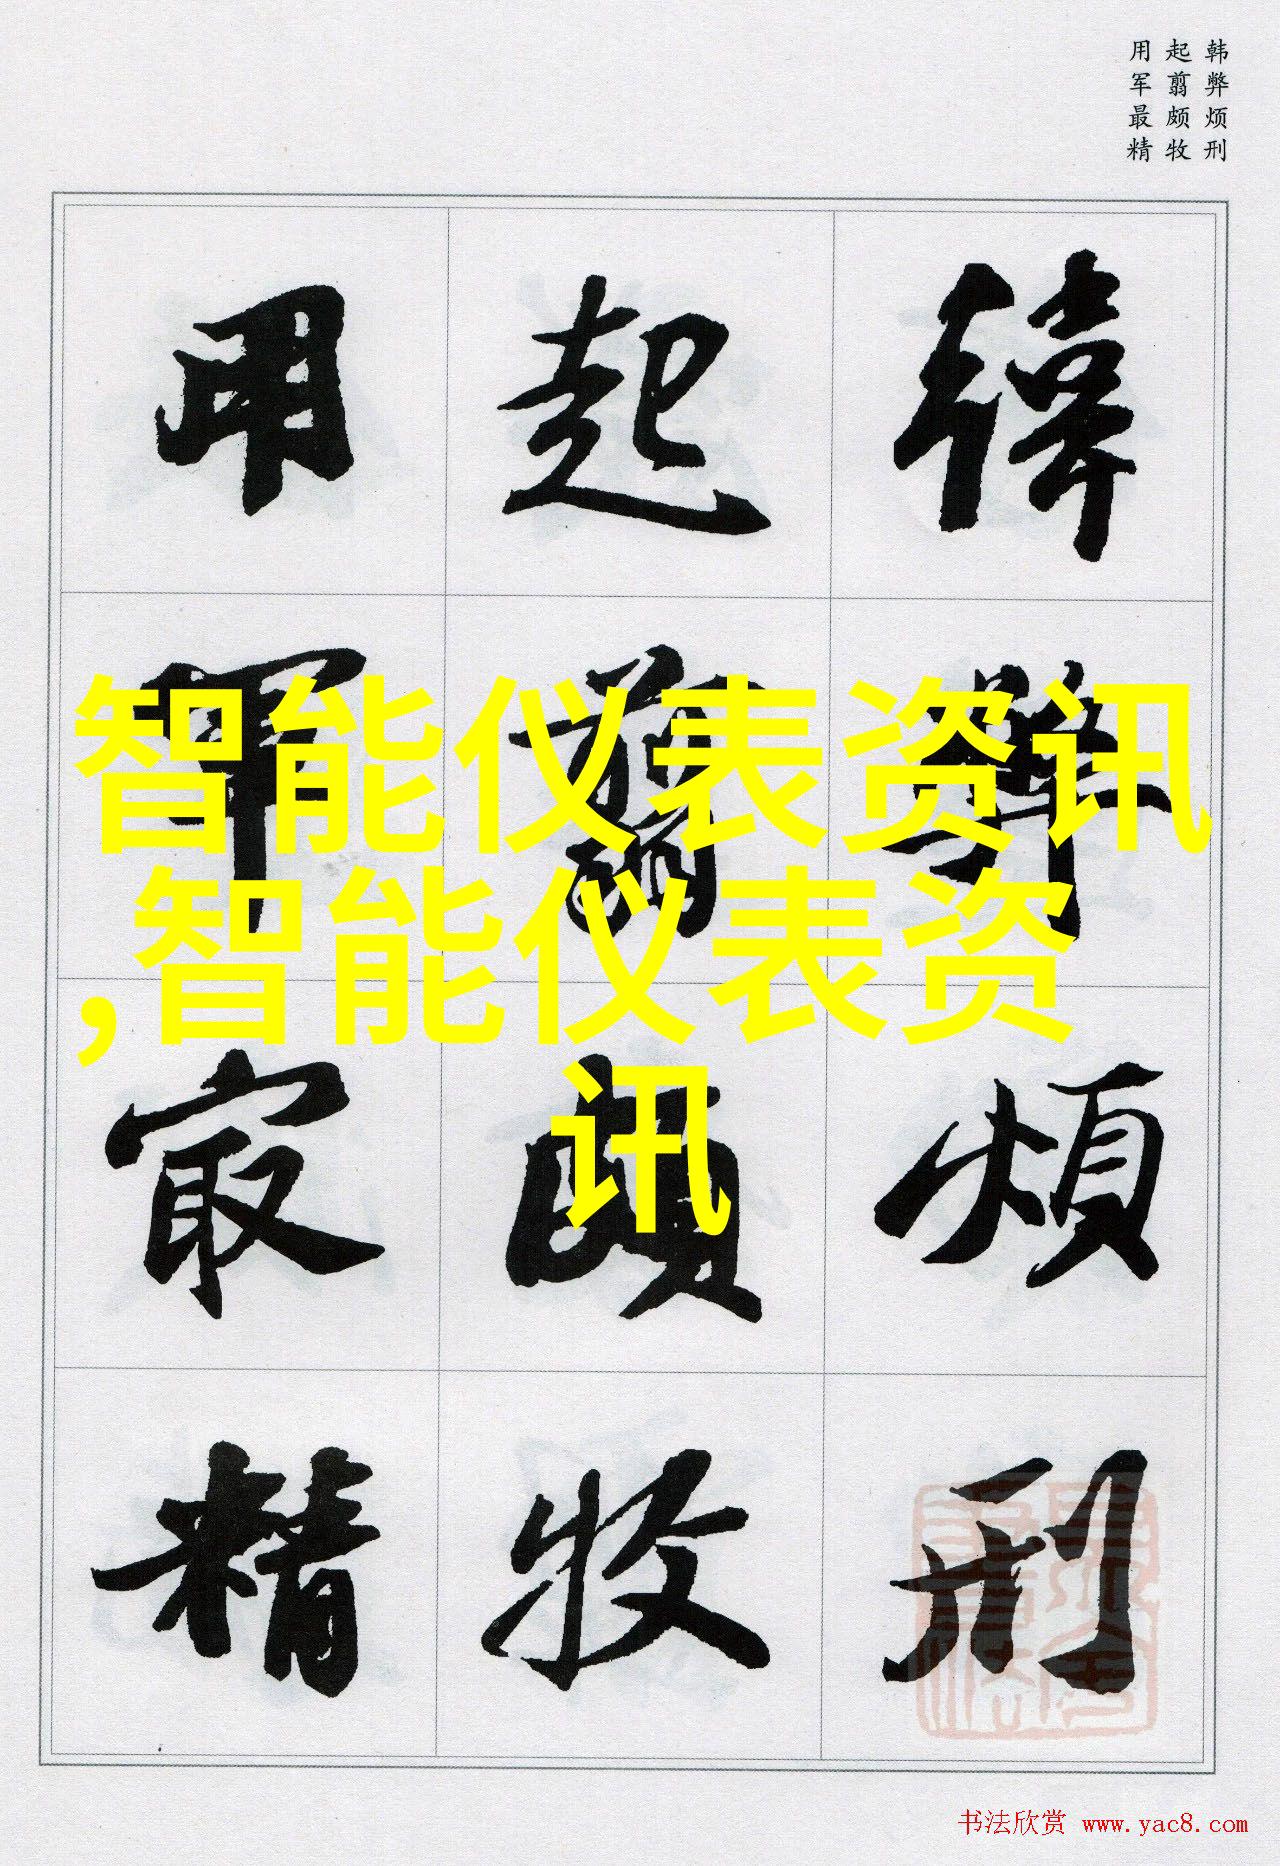 韩弊烦刑
起翦颇牧
用军最精
韓弊煩刑
起翦頗牧
用軍冣精
智能仪表资讯
,智能仪表资
讯
书法欣赏 www.yac8.com